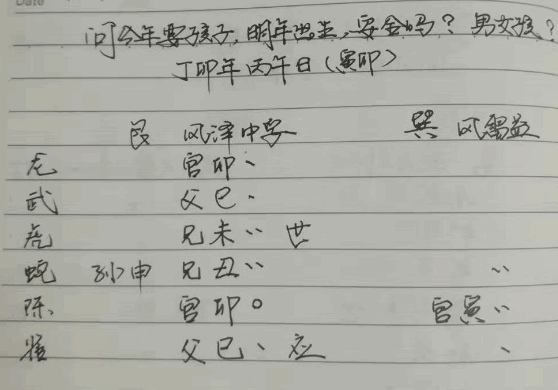 Date
问今年要孩子,明年出生,安全吗?男女孩?
丁卯年丙午日(寅卯)
艮 风泽中孚 巽 风雷益
龙 官卯、
武 父巳、
虎 兄未、、世
蛇 孙申 兄丑、、 、、
陈 官卯○ 官寅、、
雀 父巳、应 、